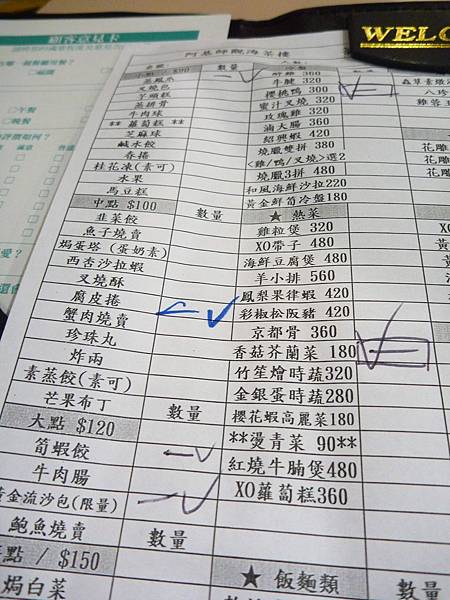 顧客意見卡
WELC
阿基師觀海茶樓
小點 / $90
數量
蒸鳳爪
叉燒包
芋頭糕
蒸排骨
牛肉球
** 蘿蔔糕 **
芝麻球
鹹水餃
春捲
桂花凍(素可)
水果
馬豆糕
中點 $100
數量
韭菜餃
魚子燒賣
焗蛋塔 (蛋奶素)
西杏沙拉蝦
叉燒酥
腐皮捲
蟹肉燒賣
珍珠丸
炸兩
素蒸餃(素可)
芒果布丁
大點 $120
數量
筍蝦餃
牛肉腸
黃金流沙包(限量)
鮑魚燒賣
點 / $150
數量
焗白菜
醉雞 360
牛腱 320
櫻桃鴨 300
蜜汁叉燒 320
玫瑰雞 320
滷大腸 360
紹興蝦 420
燒臘雙拼 380
<雞/鴨/叉燒>選2
燒臘3拼 480
和風海鮮沙拉220
黃金鮮筍冷盤180
★ 熱菜
雞粒煲 320
XO帶子 480
海鮮豆腐煲 480
羊小排 560
鳳梨果律蝦 420
彩椒松阪豬 420
京都骨 360
香菇芥蘭菜 180
竹笙燴時蔬320
金銀蛋時蔬280
櫻花蝦高麗菜180
**燙青菜 90**
紅燒牛腩煲480
XO蘿蔔糕360
★ 飯麵類
蟲草素燉
八珍
雞蓉玉
花雕
花雕
XO
黃